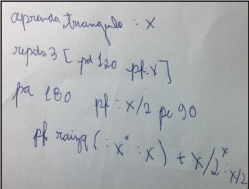 aprenda triangulo :x
repita 3 [ pd 120 pf :x ]
pd 180 pf :x/2 pe 90
pf raizq ( :x * :x) + x/2 * :x/2